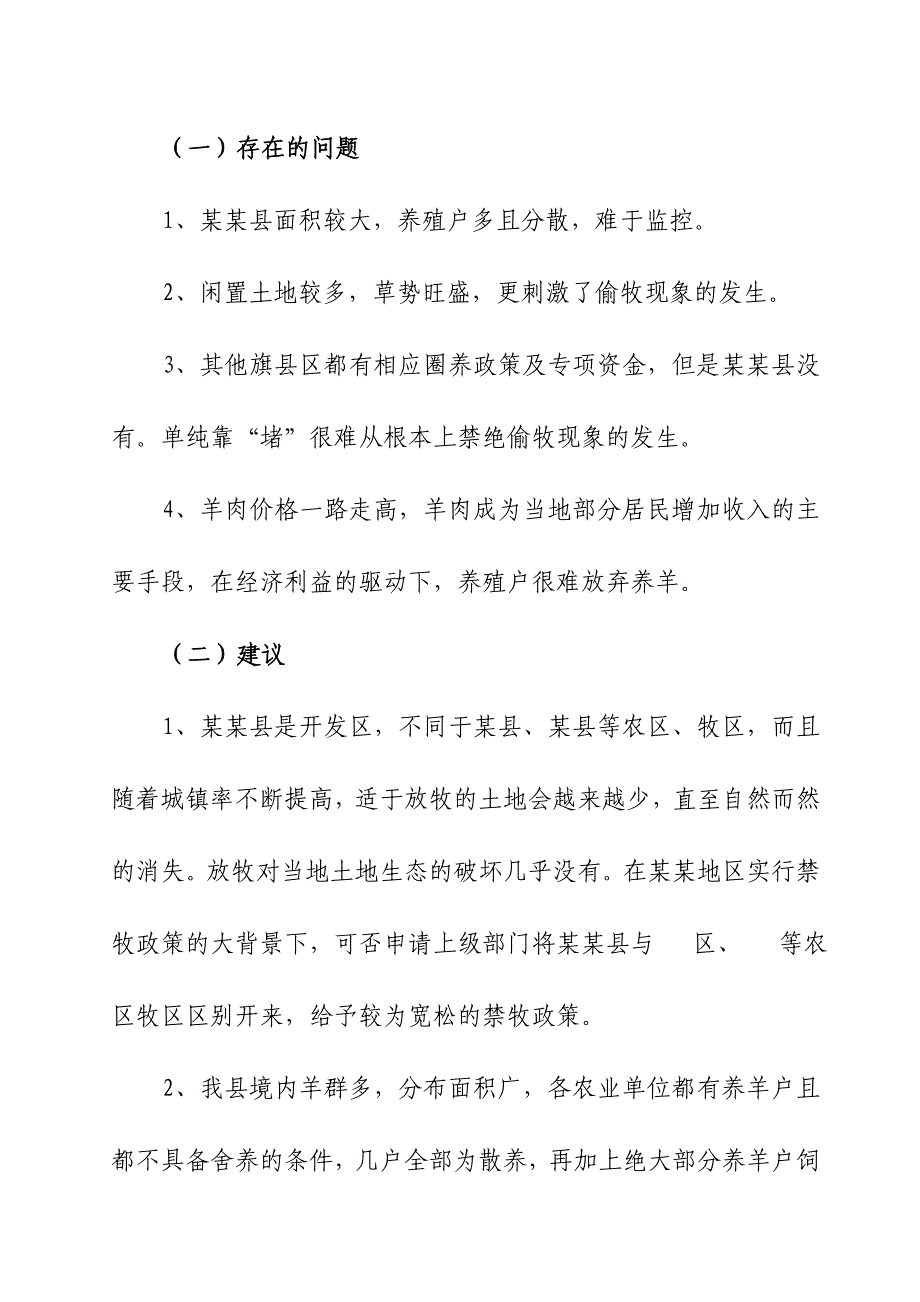 （一）存在的问题
1、某某县面积较大，养殖户多且分散，难于监控。
2、闲置土地较多，草势旺盛，更刺激了偷牧现象的发生。
3、其他旗县区都有相应圈养政策及专项资金，但是某某县没
有。单纯靠“堵”很难从根本上禁绝偷牧现象的发生。
4、羊肉价格一路走高，羊肉成为当地部分居民增加收入的主
要手段，在经济利益的驱动下，养殖户很难放弃养羊。
（二）建议
1、某某县是开发区，不同于某县、某县等农区、牧区，而且
随着城镇率不断提高，适于放牧的土地会越来越少，直至自然而然
的消失。放牧对当地土地生态的破坏几乎没有。在某某地区实行禁
牧政策的大背景下，可否申请上级部门将某某县与 区、 等农
区牧区区别开来，给予较为宽松的禁牧政策。
2、我县境内羊群多，分布面积广，各农业单位都有养羊户且
都不具备舍养的条件，几户全部为散养，再加上绝大部分养羊户饲